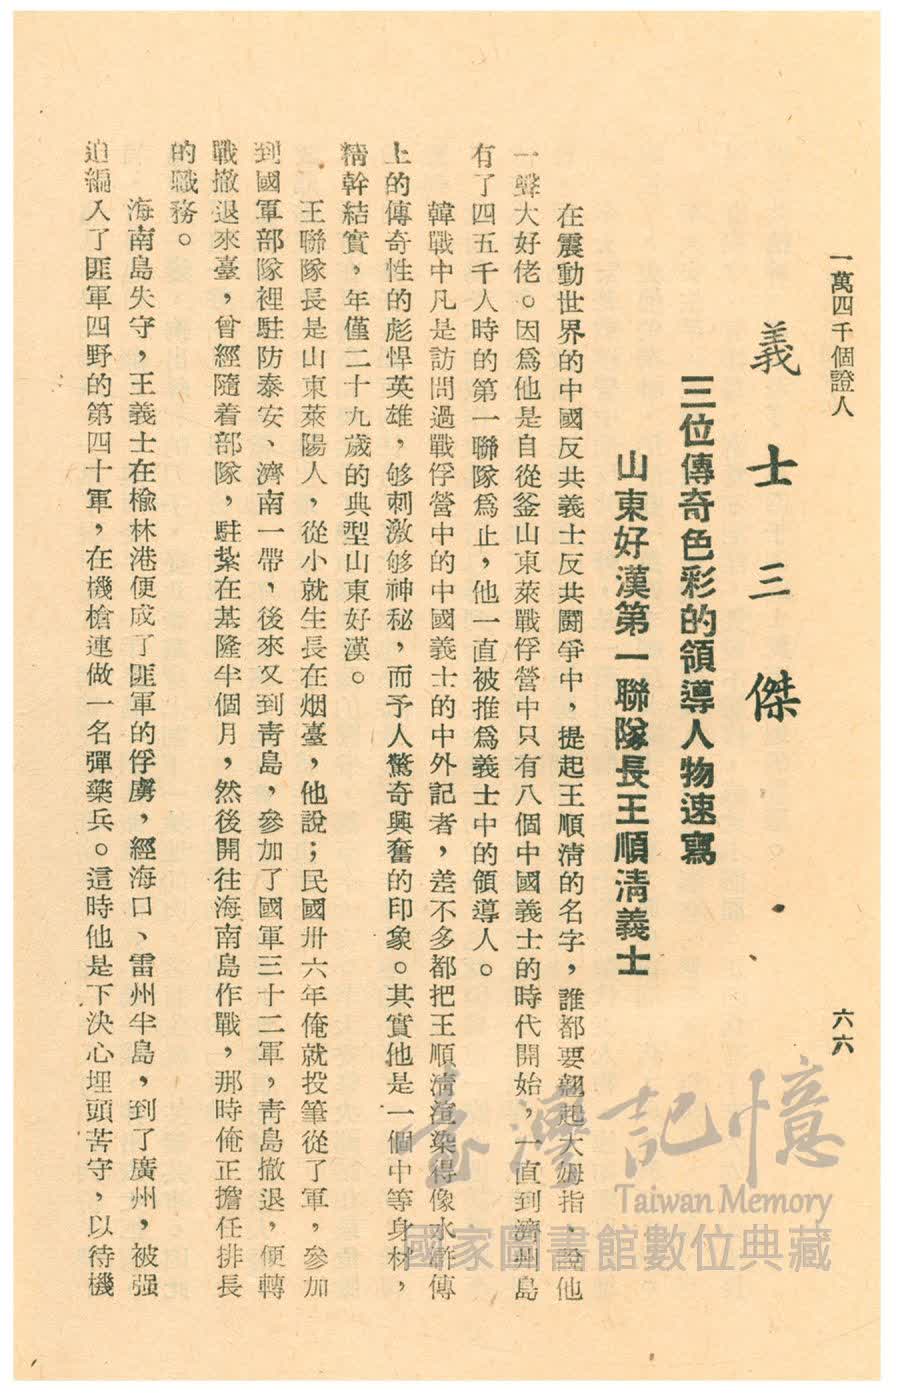 一萬四千個證人
六六
義士三傑
三位傳奇色彩的領導人物速寫
山東好漢第一聯隊長王順清義士
在震動世界的中國反共義士反共鬪爭中，提起王順清的名字，誰都要翹起大姆指，說他
一聲大好佬。因爲他是自從釜山東萊戰俘營中只有八個中國義士的時代開始，一直到濟州島
有了四五千人時的第一聯隊爲止，他一直被推爲義士中的領導人。
韓戰中凡是訪問過戰俘營中的中國義士的中外記者，差不多都把王順清渲染得像水滸傳
上的傳奇性的彪悍英雄，够刺激够神秘，而予人驚奇興奮的印象。其實他是一個中等身材，
精幹結實，年僅二十九歲的典型山東好漢。
王聯隊長是山東萊陽人，從小就生長在烟臺，他說；民國卅六年俺就投筆從了軍，參加
到國軍部隊裡駐防泰安、濟南一帶，後來又到靑島，參加了國軍三十二軍，靑島撤退，便轉
戰撤退來臺，曾經隨着部隊，駐紮在基隆半個月，然後開往海南島作戰，那時俺正擔任排長
的職務。
海南島失守，王義士在楡林港便成了匪軍的俘虜，經海口、雷州半島，到了廣州，被强
迫編入了匪軍四野的第四十軍，在機槍連做一名彈藥兵。這時他是下決心埋頭苦守，以待機
臺灣記憶
Taiwan Memory
國家圖書館數位典藏